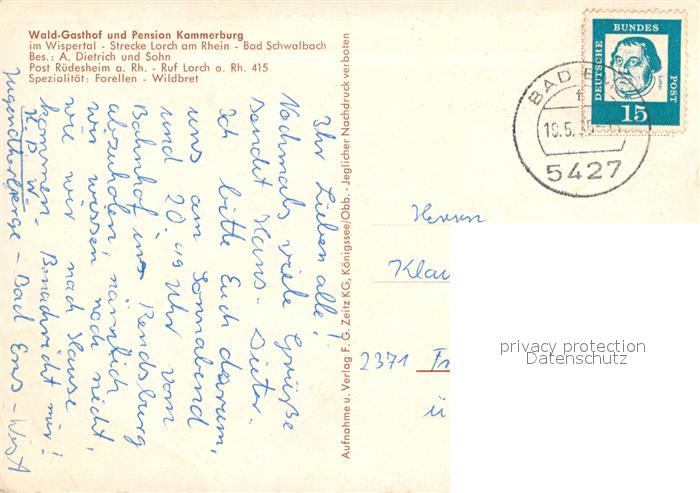 Wald-Gasthof und Pension Kammerburg
im Wispertal - Strecke Lorch am Rhein - Bad Schwalbach
Bes.: A. Dietrich und Sohn
Post Rüdesheim a. Rh. - Ruf Lorch a. Rh. 415
Spezialität: Forellen - Wildbret
Ihr Lieben alle!
Nochmals viele Grüße
sendet Hans-Dieter.
Ich bitte Euch darum,
uns am Sonnabend
und 20.49 Uhr vom
Bahnhof in Rendsburg
abzuholen, nämlich
wir wissen noch nicht,
wie wir nach Hause
kommen. Benachricht mir!
H. D. W.
Jugendherberge - Bad Ems - West
Aufnahme u. Verlag F. G. Zeitz KG, Königssee/Obb. - Jeglicher Nachdruck verboten
DEUTSCHE BUNDES POST
Luther
15
BAD
5427
Herrn
Klau
2371
ü
privacy protection
Datenschutz